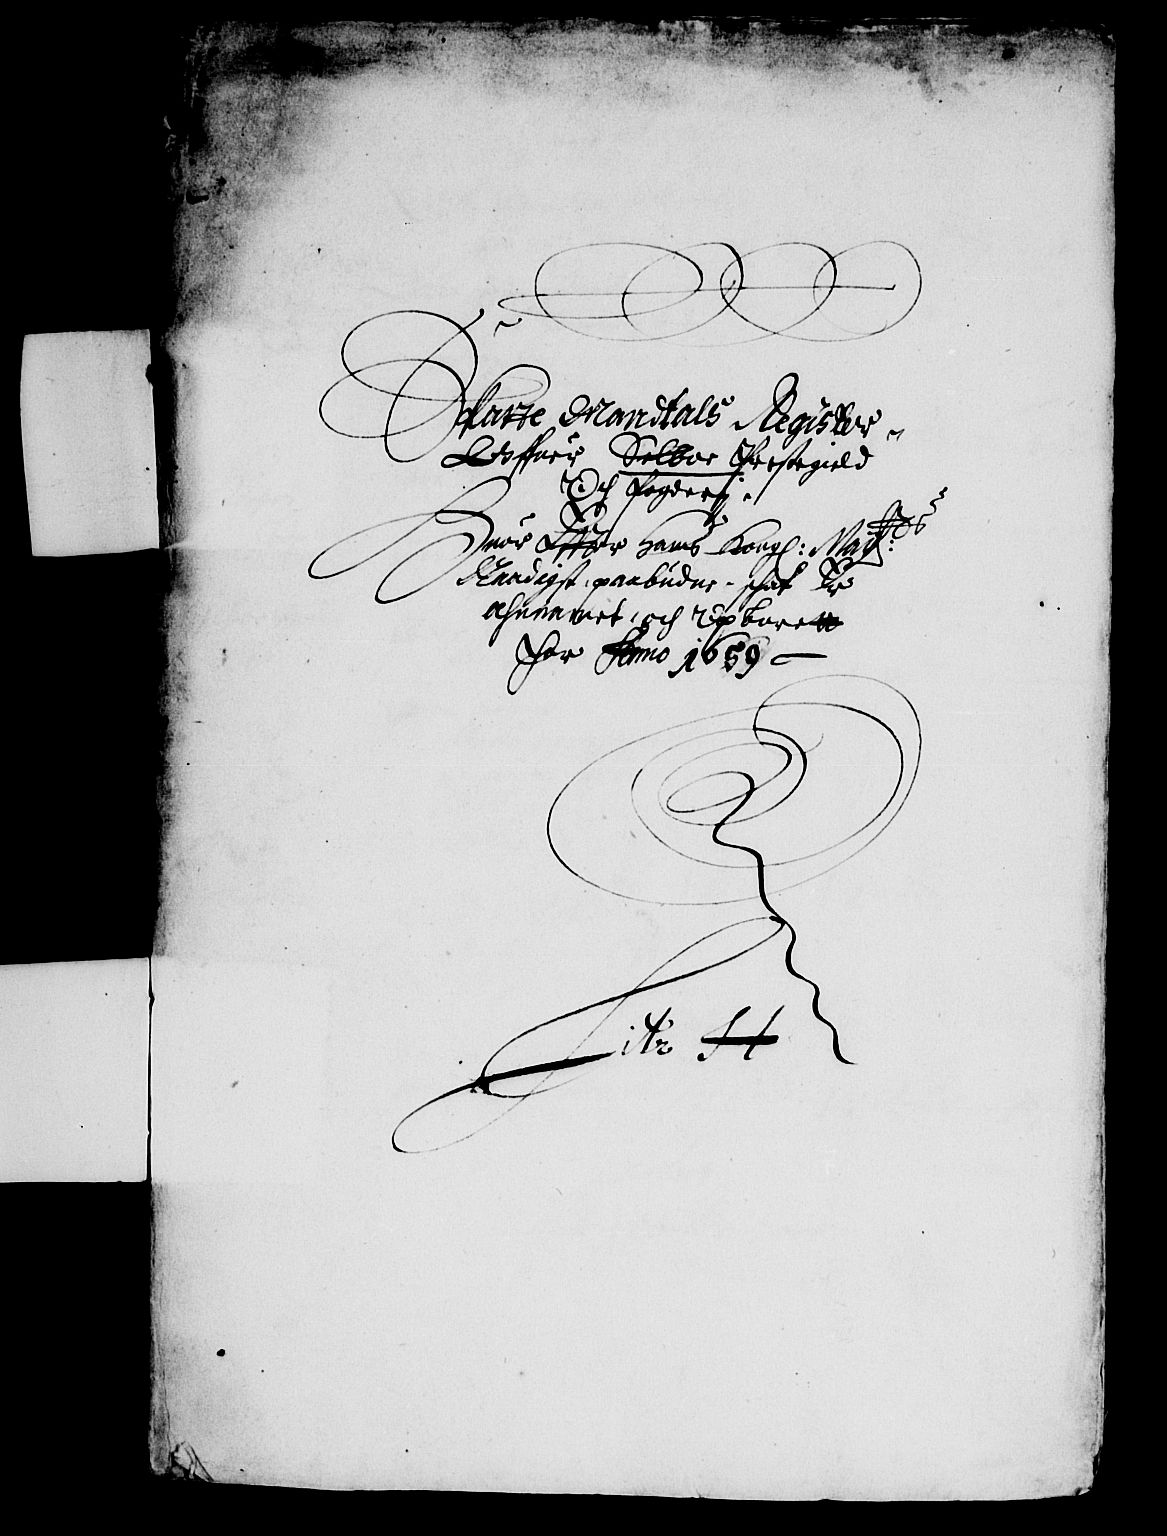 Skatte Mandtals Register
Offuer Selboe Prestegield
Och fogderj.
Huor Effter Hans Kongl: May:tts
Naadigst paabudne schat Er
Annammet och Vpborett
For Anno 1659
Litr H